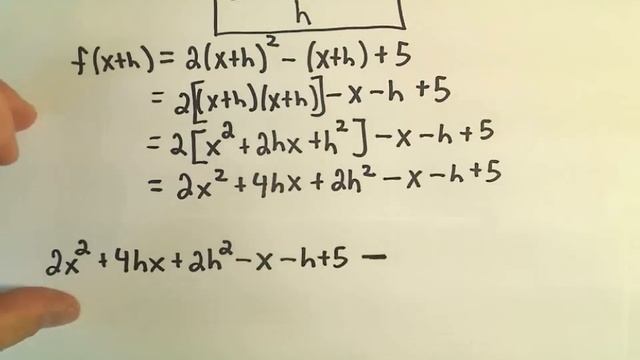 h
f(x+h) = 2(x+h)² - (x+h) + 5
= 2[(x+h)(x+h)] - x - h + 5
= 2[x² + 2hx + h²] - x - h + 5
= 2x² + 4hx + 2h² - x - h + 5
2x² + 4hx + 2h² - x - h + 5 -